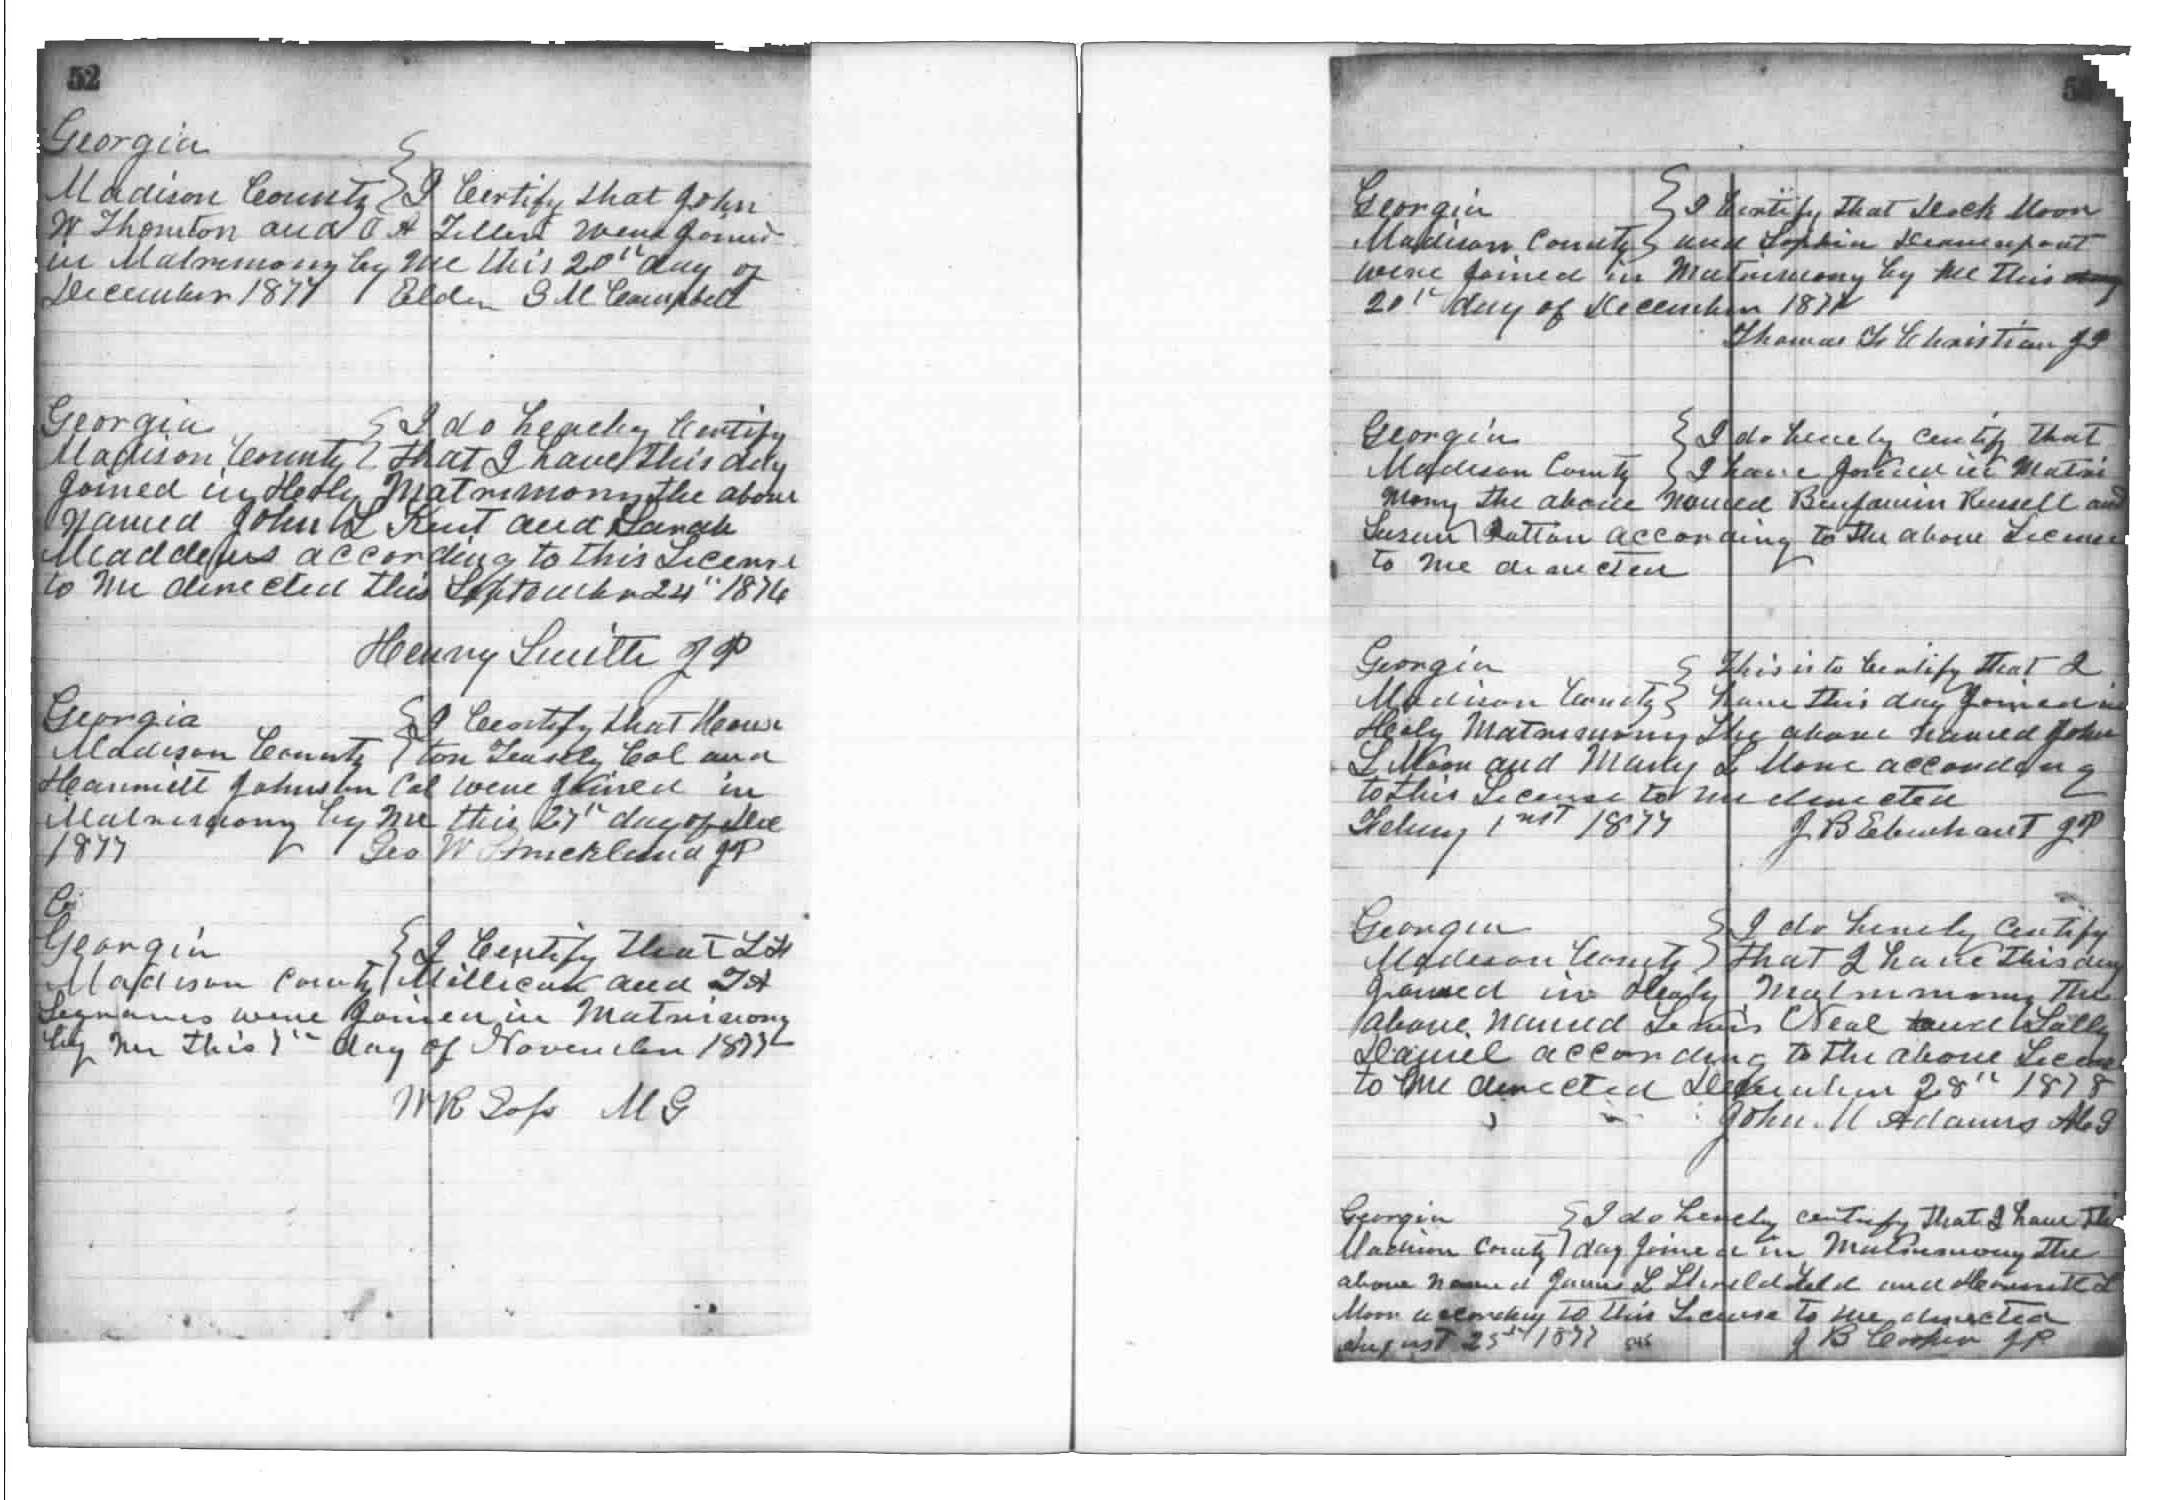 52
Georgia
Madison County } I Certify that John
W Thornton and O A Tiller were Joined
in Matrimony by Me this 20th day of
December 1877 Elder S M Campbell
Georgia } I do heareby Certify
Madison County } that I have this day
Joined in Holy Matrimony the above
Named John L Kent and Sarah
Meaddows according to this License
to Me directed this September 24th 1876
Henry Smith J P
Georgia } I Certify that
Madison County } Col and
Harriett Johnson Col were Joined in
Matrimony by Me this 27th day of Dec
1877 Geo W Strickland J P
Co
Georgia } I Certify that L H
Madison County } Millican and T A
were Joined in Matrimony
by Me this day of November 1877
W R Goss M G
Georgia } I Certify that Dock Moon
Madison County } and Sophia Deavenport
were Joined in Matrimony by Me this
20th day of December 1877
Thomas L Christian J P
Georgia } I do hereby certify that
Madison County } I have Joined in Matri
mony the above named Benjamin Russell and
Susan Patton according to the above License
to Me directed
Georgia } This is to Certify that I
Madison County } have this day Joined in
Holy Matrimony the above named John
L Moon and Mary L Mone according
to this License to me directed
1nst 1877 J B Eberhart J P
Georgia } I do hereby certify
Madison County } that I have this day
Joined in Holy Matrimony the
above named Lewis Neal and Sally
Daniel according to the above License
to Me directed December 28th 1878
John M Adams M G
Georgia } I do hereby certify that I have this
Madison County } day Joined in Matrimony the
above named James L and Harriett L
Moon according to this License to me directed
August 25th 1877 J B Cooper J P